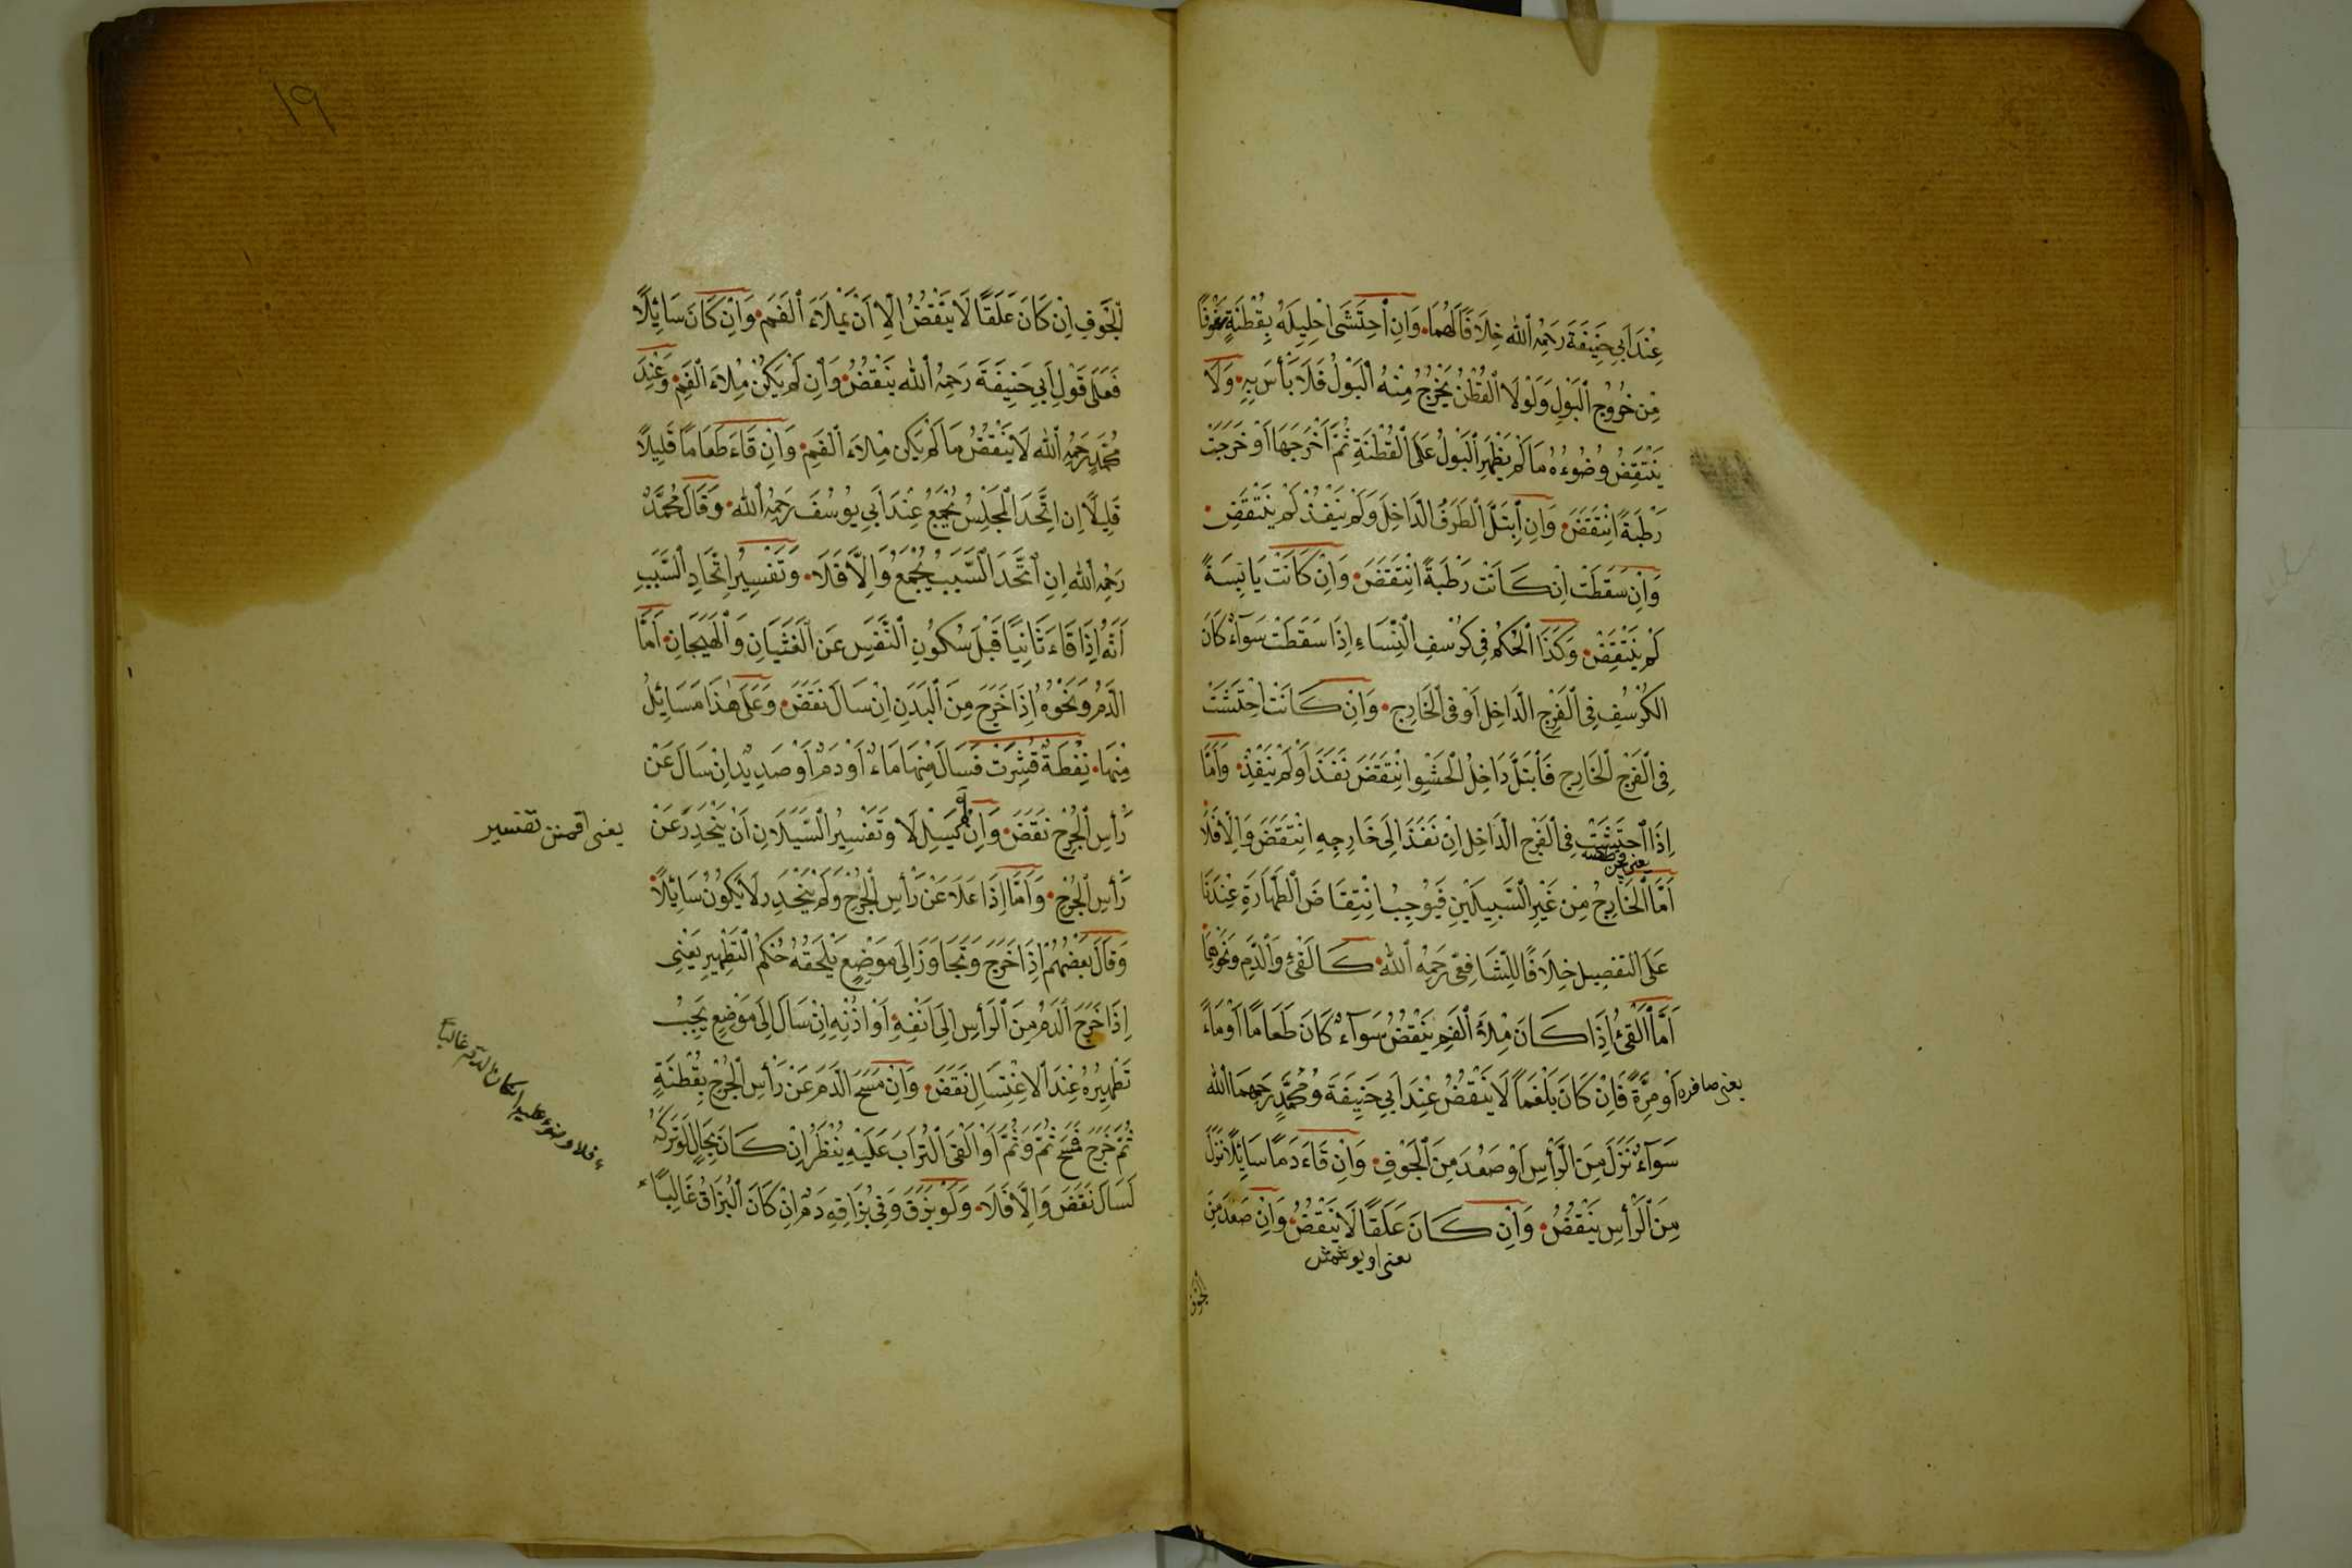 عِنْدَ اَبِي حَنِيفَةَ رَحِمَهُ اللّٰه خِلَافًا لَهُمَا وَاِنِ احْتَشَى اِحْلِيلَهُ بِقُطْنَةٍ خَوْفًا
مِنْ خُرُوجِ الْبَوْلِ وَلَوْلَا الْقُطْنُ يَخْرُجُ مِنْهُ الْبَوْلُ فَلَا بَأْسَ بِهِ وَلَا
يَنْتَقِضُ وُضُوءُهُ مَا لَمْ يَظْهَرِ الْبَوْلُ عَلَى الْقُطْنَةِ ثُمَّ اَخْرَجَهَا اَوْ خَرَجَتْ
رَطْبَةً اِنْتَقَضَ وَاِنِ ابْتَلَّ الطَّرَفُ الدَّاخِلَ وَلَمْ يَنْفُذْ لَمْ يَنْتَقِضْ
وَاِنْ سَقَطَتْ اِنْ كَانَتْ رَطْبَةً اِنْتَقَضَ وَاِنْ كَانَتْ يَابِسَةً
لَمْ يَنْتَقِضْ وَكَذَا الْحُكْمُ فِي كُرْسُفِ النِّسَاءِ اِذَا سَقَطَتْ سَوَآءٌ كَانَ
الْكُرْسُفِ فِي الْفَرْجِ الدَّاخِلِ اَوْ فِي الْخَارِجِ وَاِنْ كَانَتْ اِحْتَشَتْ
فِي الْفَرْجِ الْخَارِجِ فَابْتَلَّ دَاخِلُ الْحَشْوِ اِنْتَقَضَ نَفَذَ اَوْ لَمْ يَنْفُذْ وَاَمَّا
اِذَا احْتَشَتْ فِي الْفَرْجِ الدَّاخِلِ اِنْ نَفَذَ اِلَى خَارِجِهِ اِنْتَقَضَ وَاِلَّا فَلَا
اَمَّا الْخَارِجُ مِنْ غَيْرِ السَّبِيلَيْنِ فَيُوجِبُ انْتِقَاضَ الطَّهَارَةِ عِنْدَنَا
عَلَى التَّفْصِيلِ خِلَافًا لِلشَّافِعِيِّ رَحِمَهُ اللّٰه كَالْقَيْءِ وَالدَّمِ وَنَحْوِهِمَا
اَمَّا الْقَيْءُ اِذَا كَانَ مِلْاَ الْفَمِ يَنْقُضُ سَوَآءٌ كَانَ طَعَامًا اَوْ مَاءً
اَوْ مِرَّةً فَاِنْ كَانَ بَلْغَمًا لَا يَنْقُضُ عِنْدَ اَبِي حَنِيفَةَ وَمُحَمَّدٍ رَحِمَهُمَا اللّٰه
يعنى صافره
سَوَآءٌ نَزَلَ مِنَ الرَّأْسِ اَوْ صَعُدَ مِنَ الْجَوْفِ وَاِنْ قَاءَ دَمًا سَائِلًا نَزَلَ
مِنَ الرَّأْسِ يَنْقُضُ وَاِنْ كَانَ عَلَقًا لَا يَنْقُضُ وَاِنْ صَعُدَ مِنَ
يعنى اويوشمش
الجوف
١٩
الْجَوْفِ اِنْ كَانَ عَلَقًا لَا يَنْقُضُ اِلَّا اَنْ يَمْلَاَ الْفَمَ وَاِنْ كَانَ سَائِلًا
فَعَلَى قَوْلِ اَبِي حَنِيفَةَ رَحِمَهُ اللّٰه يَنْقُضُ وَاِنْ لَمْ يَكُنْ مِلْاَ الْفَمِ وَعِنْدَ
مُحَمَّدٍ رَحِمَهُ اللّٰه لَا يَنْقُضُ مَا لَمْ يَكُنْ مِلْاَ الْفَمِ وَاِنْ قَاءَ طَعَامًا قَلِيلًا
قَلِيلًا اِنِ اتَّحَدَ الْمَجْلِسُ يُجْمَعُ عِنْدَ اَبِي يُوسُفَ رَحِمَهُ اللّٰه وَقَالَ مُحَمَّدٌ
رَحِمَهُ اللّٰه اِنِ اتَّحَدَ السَّبَبُ يُجْمَعُ وَاِلَّا فَلَا وَتَفْسِيرُ اتِّحَادِ السَّبَبِ
اَنَّهُ اِذَا قَاءَ ثَانِيًا قَبْلَ سُكُونِ النَّفْسِ عَنِ الْغَثَيَانِ وَالْهَيَجَانِ اَمَّا
الدَّمُ وَنَحْوُهُ اِذَا خَرَجَ مِنَ الْبَدَنِ اِنْ سَالَ نَقَضَ وَعَلَى هٰذَا مَسَائِلُ
مِنْهَا نِفْطَةٌ قُشِرَتْ فَسَالَ مِنْهَا مَاءٌ اَوْ دَمٌ اَوْ صَدِيدٌ اِنْ سَالَ عَنْ
رَأْسِ الْجُرْحِ نَقَضَ وَاِنْ لَمْ يَسِلْ لَا وَتَفْسِيرُ السَّيَلَانِ اَنْ يَنْحَدِرَ عَنْ
رَأْسِ الْجُرْحِ وَاَمَّا اِذَا عَلَا عَنْ رَأْسِ الْجُرْحِ وَلَمْ يَنْحَدِرْ لَا يَكُونُ سَائِلًا
وَقَالَ بَعْضُهُمْ اِذَا خَرَجَ وَتَجَاوَزَ اِلَى مَوْضِعٍ يَلْحَقُهُ حُكْمُ التَّطْهِيرِ يَعْنِى
اِذَا خَرَجَ الدَّمُ مِنَ الرَّأْسِ اِلَى اَنْفِهِ اَوْ اُذُنِهِ اِنْ سَالَ اِلَى مَوْضِعٍ يَجِبُ
تَطْهِيرُهُ عِنْدَ الْاِغْتِسَالِ نَقَضَ وَاِنْ مَسَحَ الدَّمَ عَنْ رَأْسِ الْجُرْحِ بِقُطْنَةٍ
ثُمَّ خَرَجَ فَمَسَحَ ثُمَّ وَثُمَّ اَوْ اَلْقَى التُّرَابَ عَلَيْهِ يُنْظَرُ اِنْ كَانَ بِحَالٍ لَوْ تَرَكَهُ
لَسَالَ نَقَضَ وَاِلَّا فَلَا وَلَوْ بَزَقَ وَفِي بُزَاقِهِ دَمٌ اِنْ كَانَ الْبُزَاقُ غَالِبًا
فلا وضوء عليه ان كان الدم غالبا